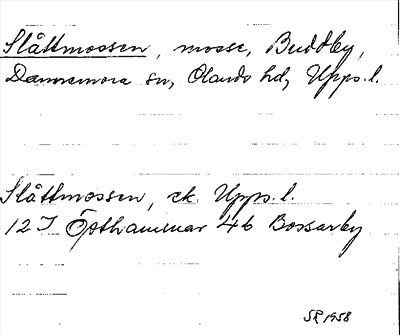 Slåttmossen, mosse, Buddby,
Dannemora sn, Olands hd, Upps.l.
Slåttmossen, ek. Upps.l.
12I Östhammar 4b Bossarby
SR 1958